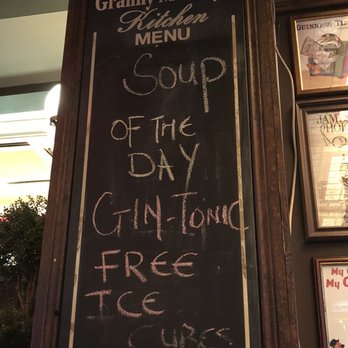 Granny
Kitchen
MENU
Soup
OF THE
DAY
GIN-TONIC
FREE
ICE
CUBES
GUINNESS-TI
JAM
CHOP
My
My C